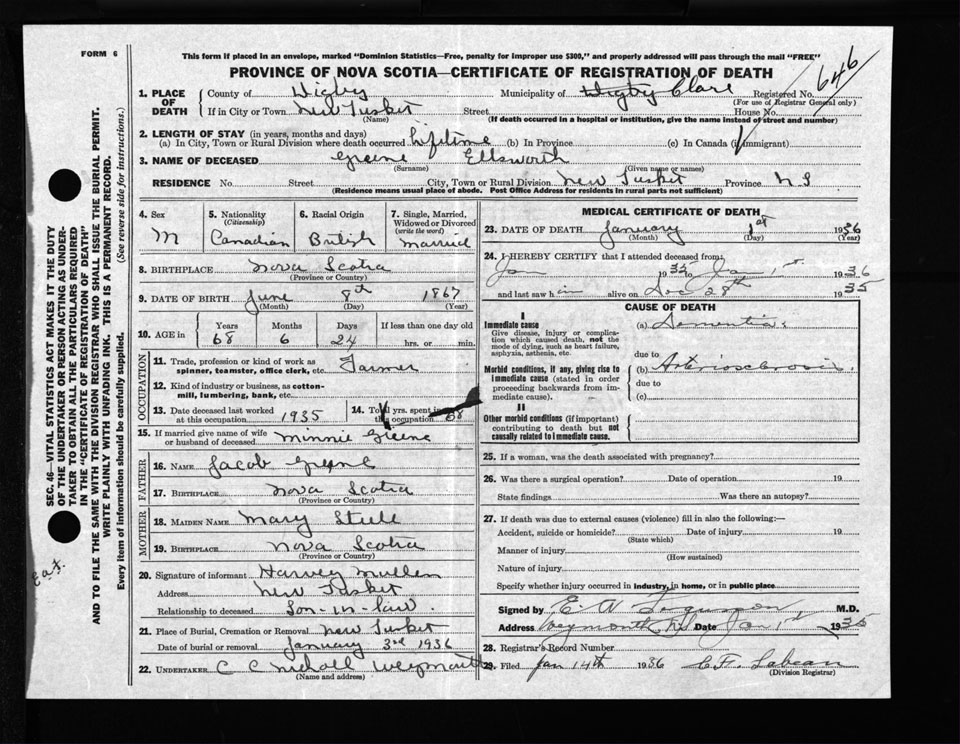 FORM 6
This form if placed in an envelope, marked "Dominion Statistics—Free, penalty for improper use $300," and properly addressed will pass through the mail "FREE"
PROVINCE OF NOVA SCOTIA—CERTIFICATE OF REGISTRATION OF DEATH
646
1. PLACE OF DEATH County of Digby Municipality of Digby Clare Registered No.
(For use of Registrar General only)
If in City or Town New Tusket Street House No.
(Name) (If death occurred in a hospital or institution, give the name instead of street and number)
2. LENGTH OF STAY (in years, months and days)
(a) In City, Town or Rural Division where death occurred Lifetime (b) In Province (c) In Canada (if immigrant)
3. NAME OF DECEASED Greene Ellsworth
(Surname) (Given name or names)
RESIDENCE No. Street City, Town or Rural Division New Tusket Province N S
(Residence means usual place of abode. Post Office Address for residents in rural parts not sufficient)
4. Sex M
5. Nationality (Citizenship) Canadian
6. Racial Origin British
7. Single, Married, Widowed or Divorced (write the word) Married
8. BIRTHPLACE Nova Scotia
(Province or Country)
9. DATE OF BIRTH June 8th 1867
(Month) (Day) (Year)
10. AGE in Years 68 Months 6 Days 24 If less than one day old hrs. or min.
OCCUPATION
11. Trade, profession or kind of work as spinner, teamster, office clerk, etc. Farmer
12. Kind of industry or business, as cotton-mill, lumbering, bank, etc.
13. Date deceased last worked at this occupation 1935
14. Total yrs. spent in this occupation 68
15. If married give name of wife or husband of deceased Minnie Greene
FATHER
16. NAME Jacob Greene
17. BIRTHPLACE Nova Scotia
(Province or Country)
MOTHER
18. MAIDEN NAME Mary Steele
19. BIRTHPLACE Nova Scotia
(Province or Country)
20. Signature of informant Harvey Mullen
Address New Tusket
Relationship to deceased Son-in-law.
21. Place of Burial, Cremation or Removal New Tusket
Date of burial or removal January 3rd 1936
22. UNDERTAKER C C Nicholl Weymouth
(Name and address)
MEDICAL CERTIFICATE OF DEATH
23. DATE OF DEATH January 1st 1936
(Month) (Day) (Year)
24. I HEREBY CERTIFY that I attended deceased from
Jan 1935 to Jan 1st 1936
and last saw him alive on Dec 28th 1935
CAUSE OF DEATH
I
Immediate cause
Give disease, injury or complication which caused death, not the mode of dying, such as heart failure, asphyxia, asthenia, etc.
(a) Dementia
due to
Morbid conditions, if any, giving rise to immediate cause (stated in order proceeding backwards from immediate cause).
(b) Arteriosclerosis
due to
(c)
II
Other morbid conditions (if important) contributing to death but not causally related to immediate cause.
25. If a woman, was the death associated with pregnancy?
26. Was there a surgical operation? Date of operation 19
State findings Was there an autopsy?
27. If death was due to external causes (violence) fill in also the following:—
Accident, suicide or homicide? Date of injury 19
(State which)
Manner of injury
(How sustained)
Nature of injury
Specify whether injury occurred in industry, in home, or in public place
Signed by E. A. Ferguson, M.D.
Address Weymouth, N.S. Date Jan 1st 1935
28. Registrar's Record Number
29. Filed Jan 14th 1936 C.F. Lebean
(Division Registrar)
SEC. 46—VITAL STATISTICS ACT MAKES IT THE DUTY
OF THE UNDERTAKER OR PERSON ACTING AS UNDER-
TAKER TO OBTAIN ALL THE PARTICULARS REQUIRED
IN THE "CERTIFICATE OF REGISTRATION OF DEATH"
AND TO FILE THE SAME WITH THE DIVISION REGISTRAR WHO SHALL ISSUE THE BURIAL PERMIT.
WRITE PLAINLY WITH UNFADING INK. THIS IS A PERMANENT RECORD.
Every item of information should be carefully supplied. (See reverse side for instructions.)